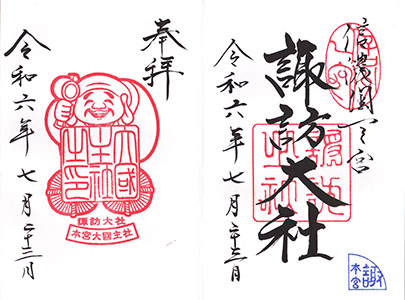 奉拝
大國
主社
之印
諏訪大社
本宮大國主社
令和六年七月二十三日
信濃國一之宮
諏訪大社
令和六年七月二十三日
諏
本宮